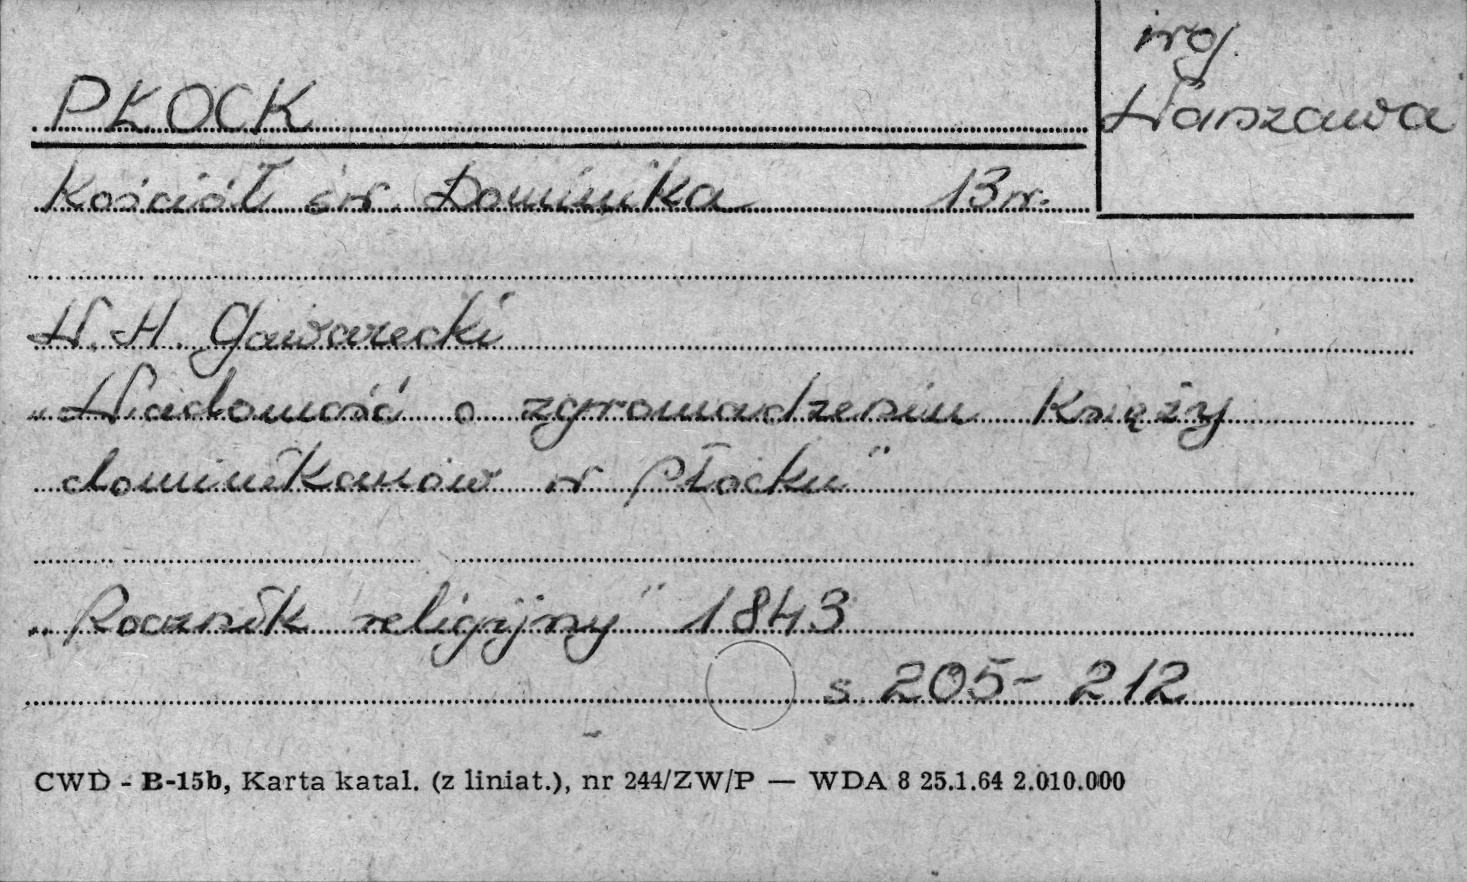 woj.
Warszawa
PŁOCK
Kościół św. Dominika 13 w.
W. H. Gawarecki
„Wiadomość o zgromadzeniu Księży
dominikanów w Płocku"
„Rocznik religijny" 1843
s. 205-212
CWD - B-15b, Karta katal. (z liniat.), nr 244/ZW/P — WDA 8 25.1.64 2.010.000